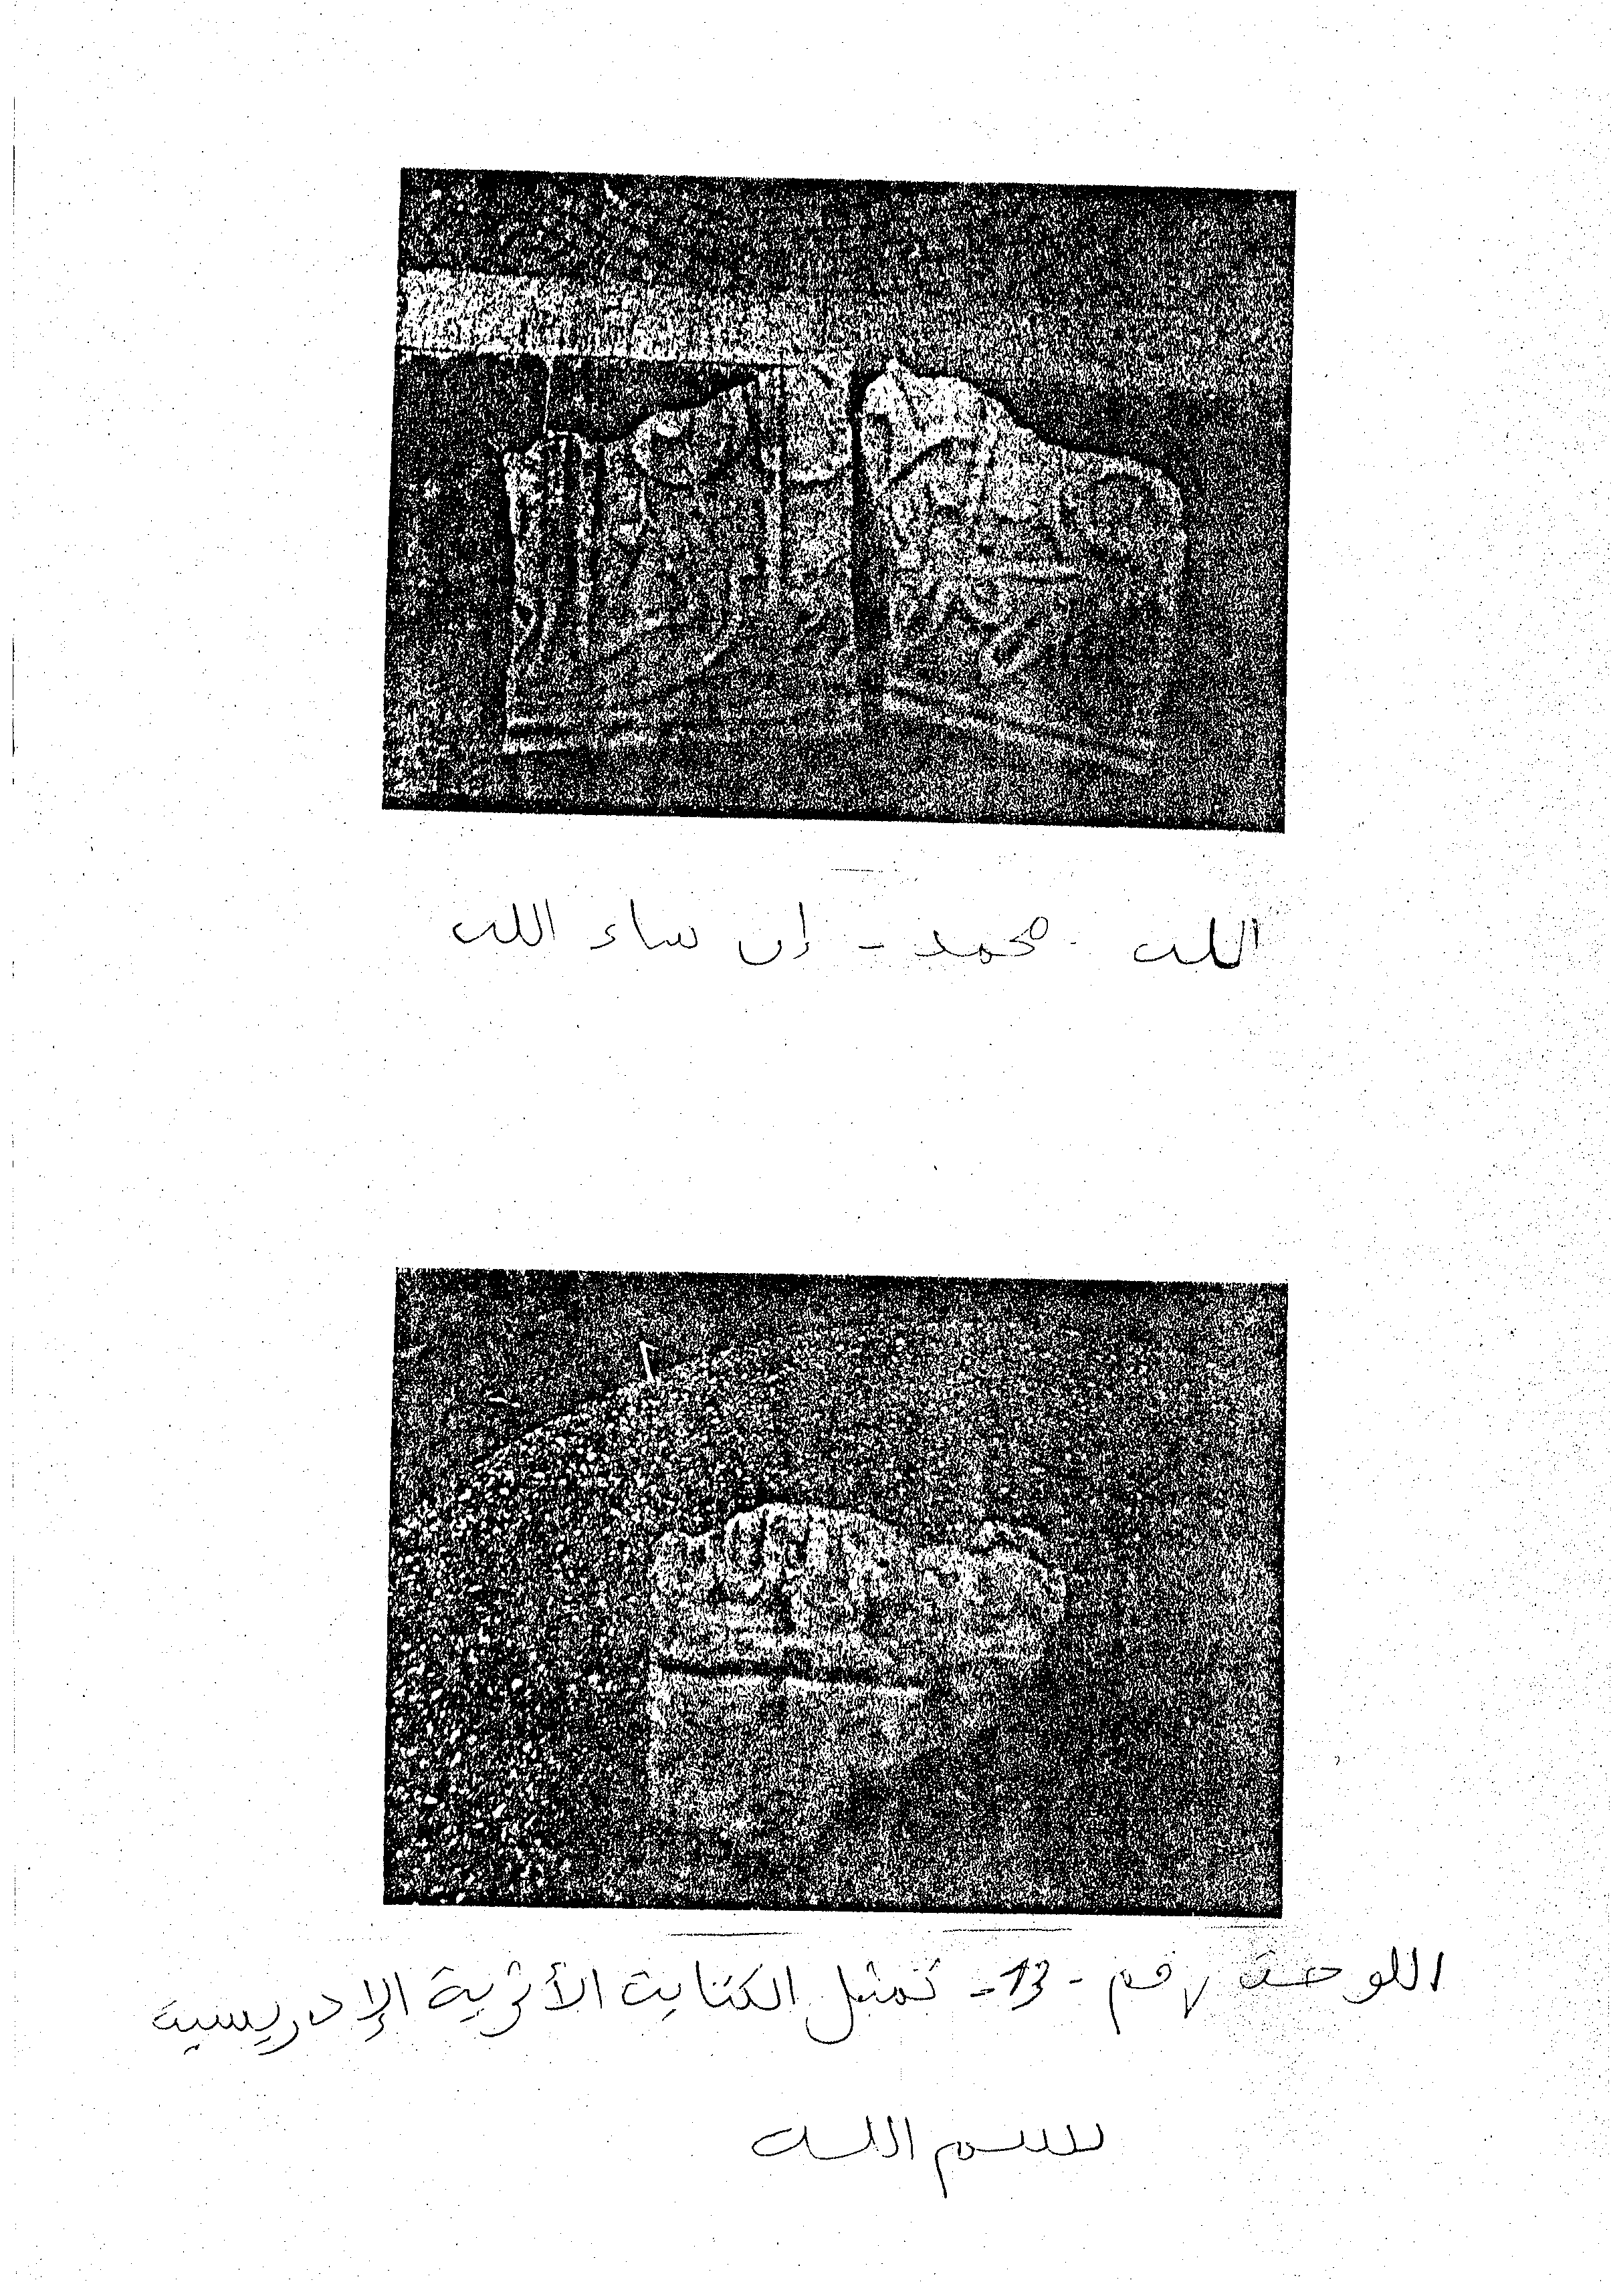 الله - محمد - إن ساء الله
اللوحة رقم - 13 - تمثل الكتابة الأثرية الإدريسية
بسم الله